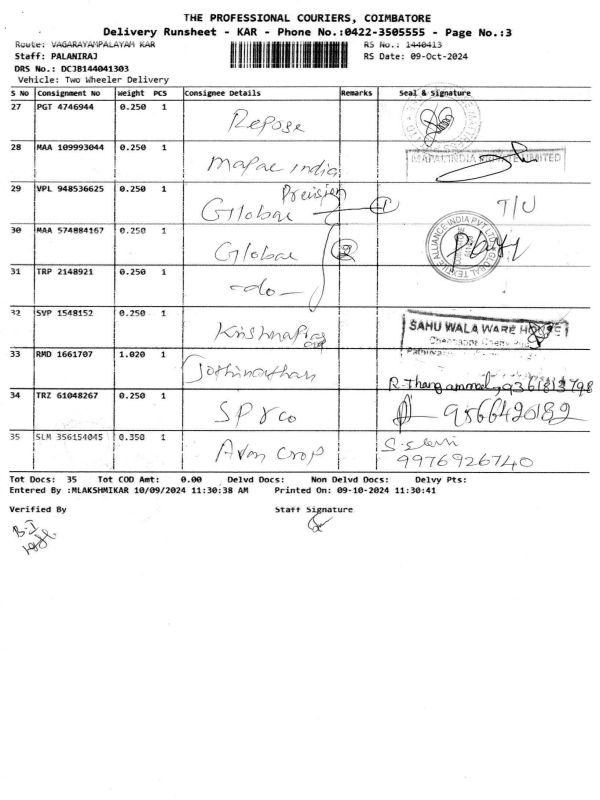 THE PROFESSIONAL COURIERS, COIMBATORE
Delivery Runsheet - KAR - Phone No.:0422-3505555 - Page No.:3
Route: VAGARAYAMPALAYAM KAR
RS No.: 1440413
Staff: PALANIRAJ
RS Date: 09-Oct-2024
DRS No.: DCJB144041303
Vehicle: Two Wheeler Delivery
S No Consignment No Weight PCS Consignee Details Remarks Seal & Signature
27 PGT 4746944 0.250 1 Repose
28 MAA 109993044 0.250 1 Mapal india MAPAL INDIA PRIVATE LIMITED
29 VPL 948536625 0.250 1 Global Precision 1 T/U
30 MAA 574884167 0.250 1 Global 2 GLOBAL TEXTILE ALLIANCE INDIA PVT. LTD
31 TRP 2148921 0.250 1 -do-
32 SVP 1548152 0.250 1 SAHU WALA WARE HOUSE
33 RMD 1661707 1.020 1 Jothinathan R. Thangammal, 9361813798
34 TRZ 61048267 0.250 1 SP & co 9566420182
35 SLM 356154045 0.350 1 Avon crop 9976926740
Tot Docs: 35 Tot COD Amt: 0.00 Delvd Docs: Non Delvd Docs: Delvy Pts:
Entered By :MLAKSHMIKAR 10/09/2024 11:30:38 AM Printed On: 09-10-2024 11:30:41
Verified By Staff Signature